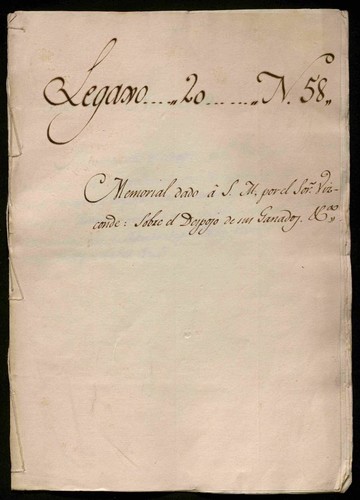 Legaxo....,,20......,,N. 58,,
Memorial dado â S. M. por el Sor. Viz-
conde: Sobre el Despojo de sus Ganados. &ca,,